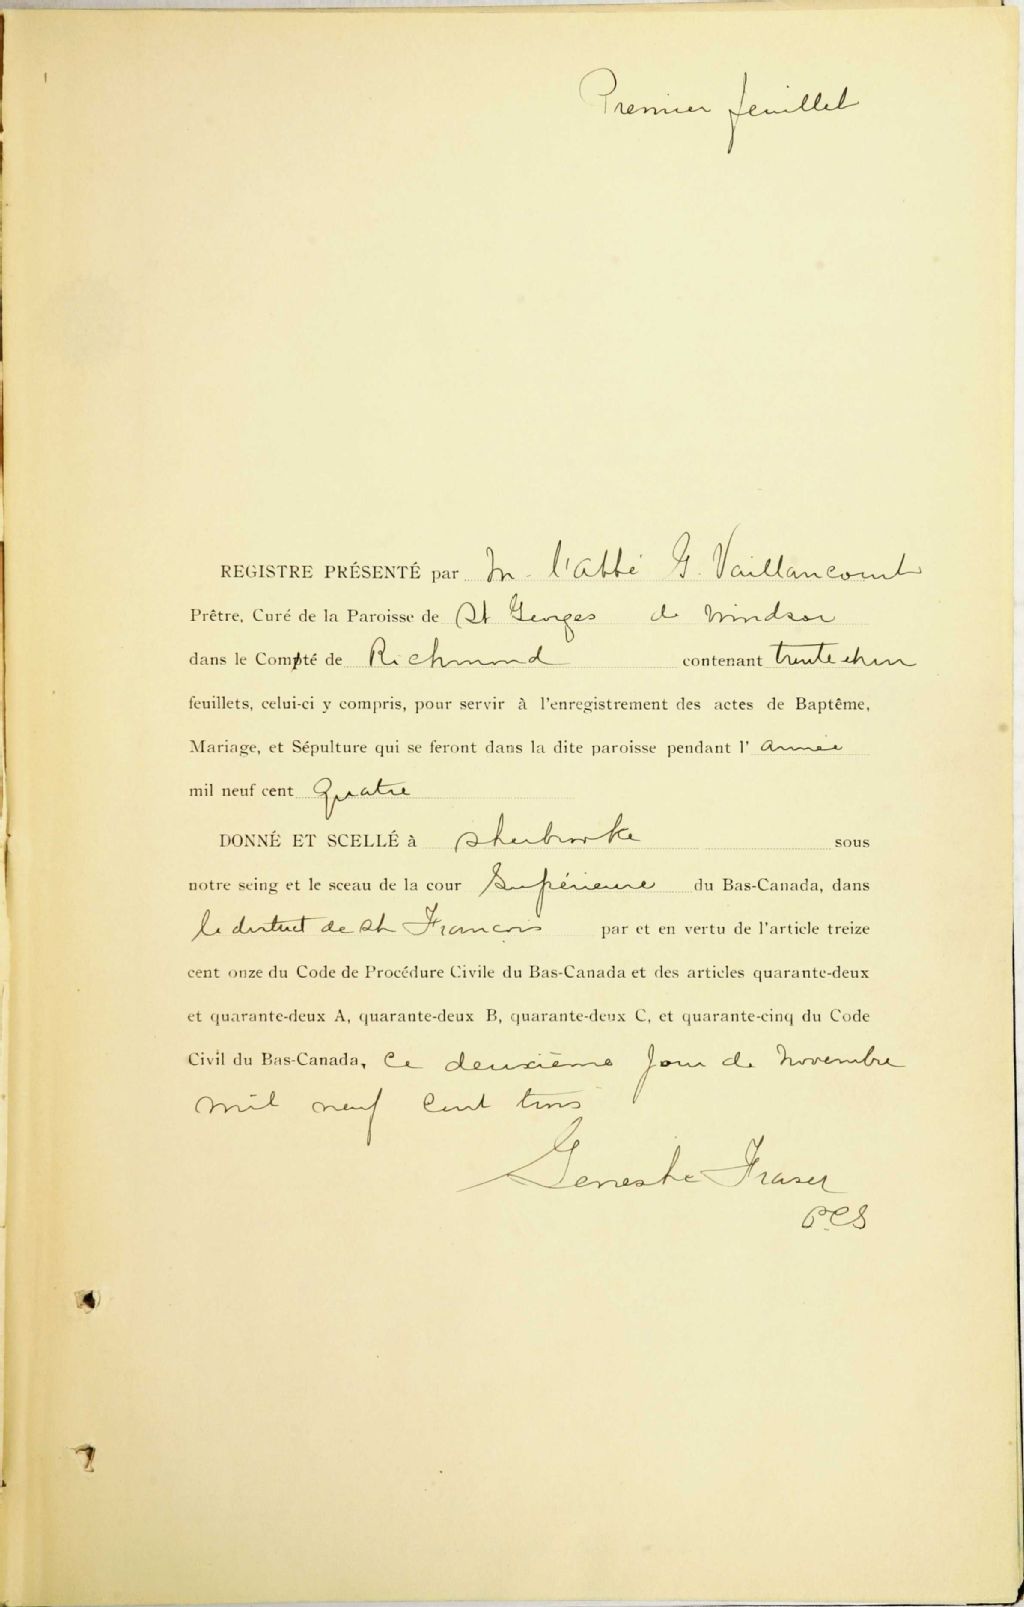 Premier feuillet
REGISTRE PRÉSENTÉ par M. l'Abbé G. Vaillancourt
Prêtre, Curé de la Paroisse de St Georges de Windsor
dans le Compté de Richmond contenant trente et un
feuillets, celui-ci y compris, pour servir à l'enregistrement des actes de Baptême,
Mariage, et Sépulture qui se feront dans la dite paroisse pendant l' Année
mil neuf cent Quatre
DONNÉ ET SCELLÉ à Sherbrooke sous
notre seing et le sceau de la cour Supérieure du Bas-Canada, dans
le district de St François par et en vertu de l'article treize
cent onze du Code de Procédure Civile du Bas-Canada et des articles quarante-deux
et quarante-deux A, quarante-deux B, quarante-deux C, et quarante-cinq du Code
Civil du Bas-Canada, Ce deuxième jour de Novembre
mil neuf cent trois
Geneste Fraser
P.C.S